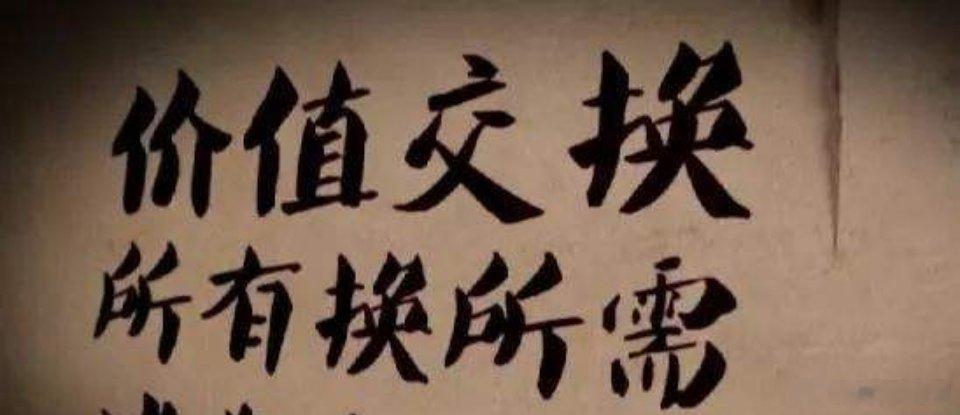 价值交换
所有换所需